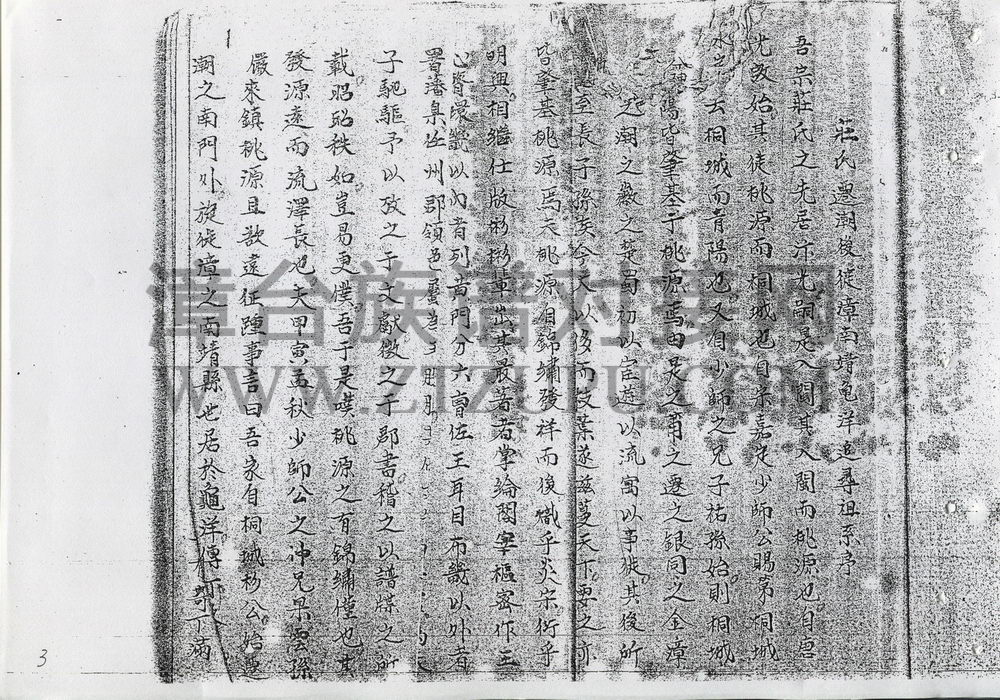 莊氏遷潮後徙漳南靖龜洋追尋祖系序
吾宗莊氏之先居 嗣是入閩其入閩而桃源也自唐
光啟始其徙桃源而桐城也自宋嘉定少師公賜第桐城
云桐城而青陽也又自少師之兄子祐孫始則桐城
陽皆肇基于桃源焉由是之甫之遷之銀同之金漳
之潮之粵之楚蜀初以宦遊以流寓以事徙其後所
至長子孫矣今大以後而枝葉遂茲蔓天下要之亦
皆肇基桃源焉夫桃源自錦繡發祥而後熾乎炎宋衍乎
明興相繼仕版彬彬輩出其最著者掌綸閣宰樞密作王
心膂環畿以內者列黃門分六曹佐王耳目布畿以外者
署藩臬任州郡領邑
子馳驅予以攷之于文獻徵之于郡書稽之以譜牒之所
載昭昭秩如豈易更僕吾于是嘆桃源之有錦繡僅也其
發源遠而流澤長也夫甲寅孟秋少師公之冲兄杲雲孫
嚴來鎮桃源且欲遠征踵事言曰吾家自桐城杉公始遷
潮之南門外旋徙漳之南靖縣世居於龜洋傳
3
漳台族谱对接网
WWW.ZTZUPU.COM